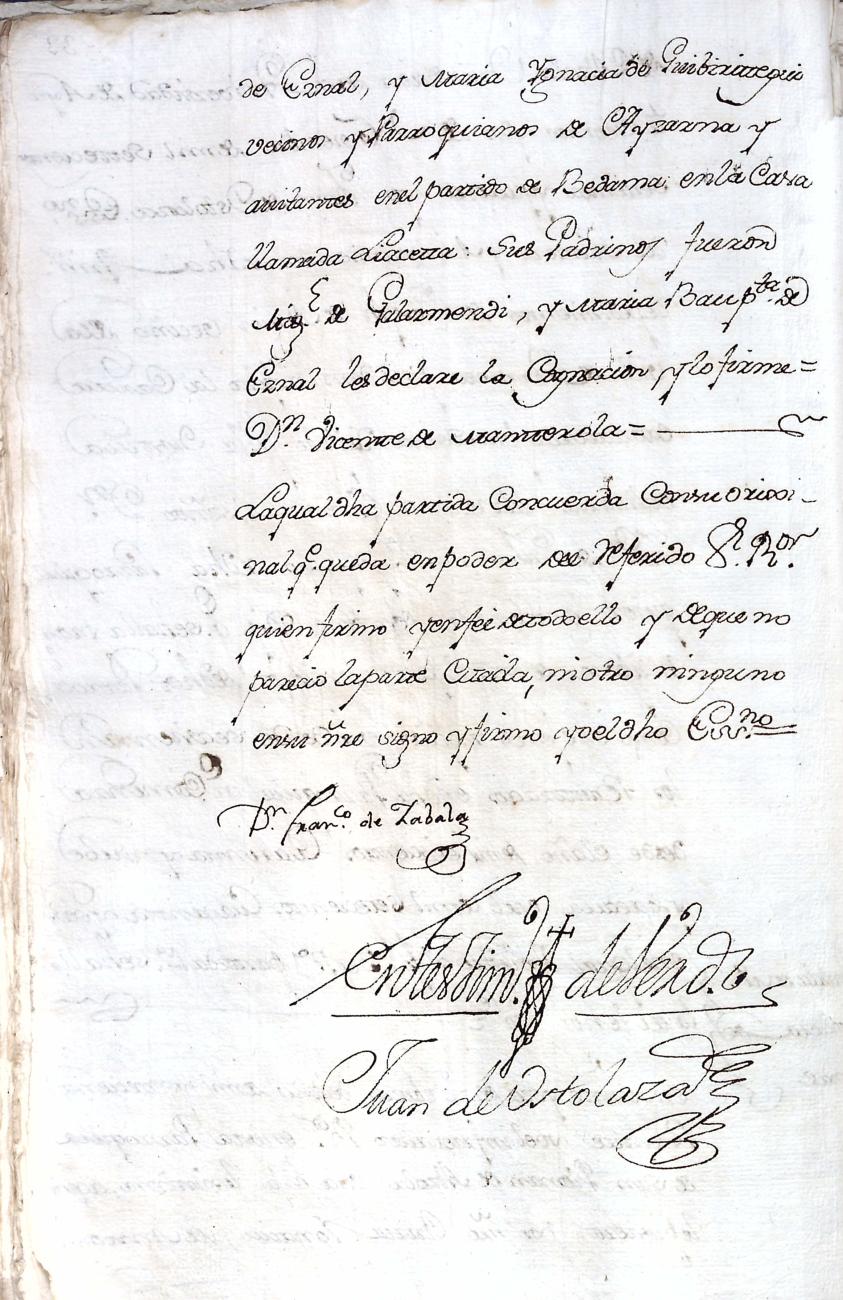 de Ernal, y Maria Ygnacia de Guibiriztegui
vecinos y Parroquianos de Ayzarna y
avitantes enel partido de Bedama, enla Casa
llamada Liacetta: Sus Padrinos fueron
de Galarmendi, y Maria Baup.ta de
Ernal les declare la Cognacion, y lo firme =
D.n Vicente de Manterola =
Laqual dha partida Concuerda Consu origi-
nal q.e queda enpoder del referido S.r R.or
quien firmo y enfee detodo ello y de que no
parecio la parte Citada, ni otro ninguno
ensu nre signo y firmo yo el dho Ess.no
D.n Fran.co de Zabala
En testim.o de Verd.d
Juan de Ostolaza